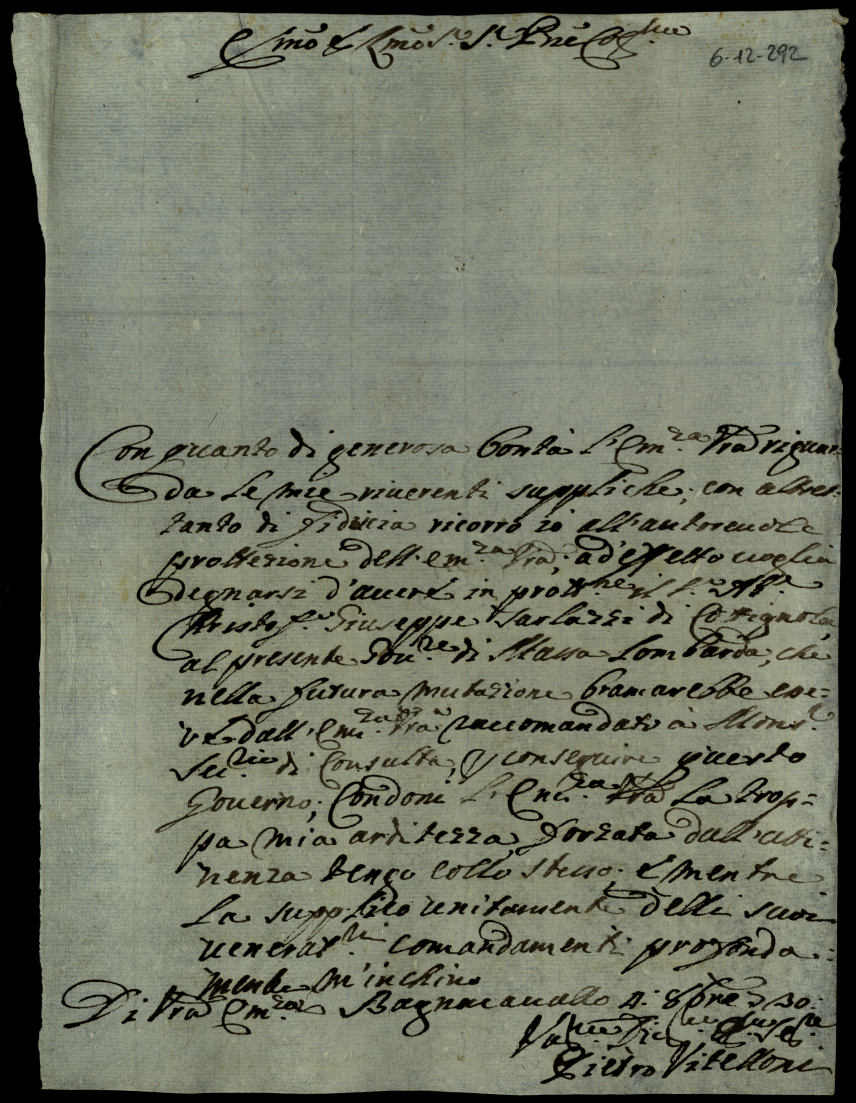 Emo e Rmo Sr. Sr. Pne Col.mo
6-12-292
Con quanto di generosa bontà l'Em.za Vra riguar=
da le mie riverenti suppliche, con altret=
tanto di fiducia ricorro io all'autorevole
prottezione dell'Em.za Vra, ad'effetto voglia
degnarsi d'avere in prott.ne il S.r Ab.e
Cristof.o Giuseppe Sarlazzi di Cottignola
al presente Gov.re di Massa Lombarda, che
nella futura mutazione bramarebbe esse=
re dall'Em.za Vra raccomandato à Mons.r
Sec.rio di Consulta, p conseguire questo
Governo; Condoni l'Em.za Vra la trop=
pa mia arditezza, forzata dall'atti=
nenza tengo collo stesso; e mentre
la supplico unitamente delli suoi
venerat.mi comandamenti profonda=
mente m'inchino
Di Vra Em.za Bagnacavallo 4: 8bre 730:
Pietro Vitelloni